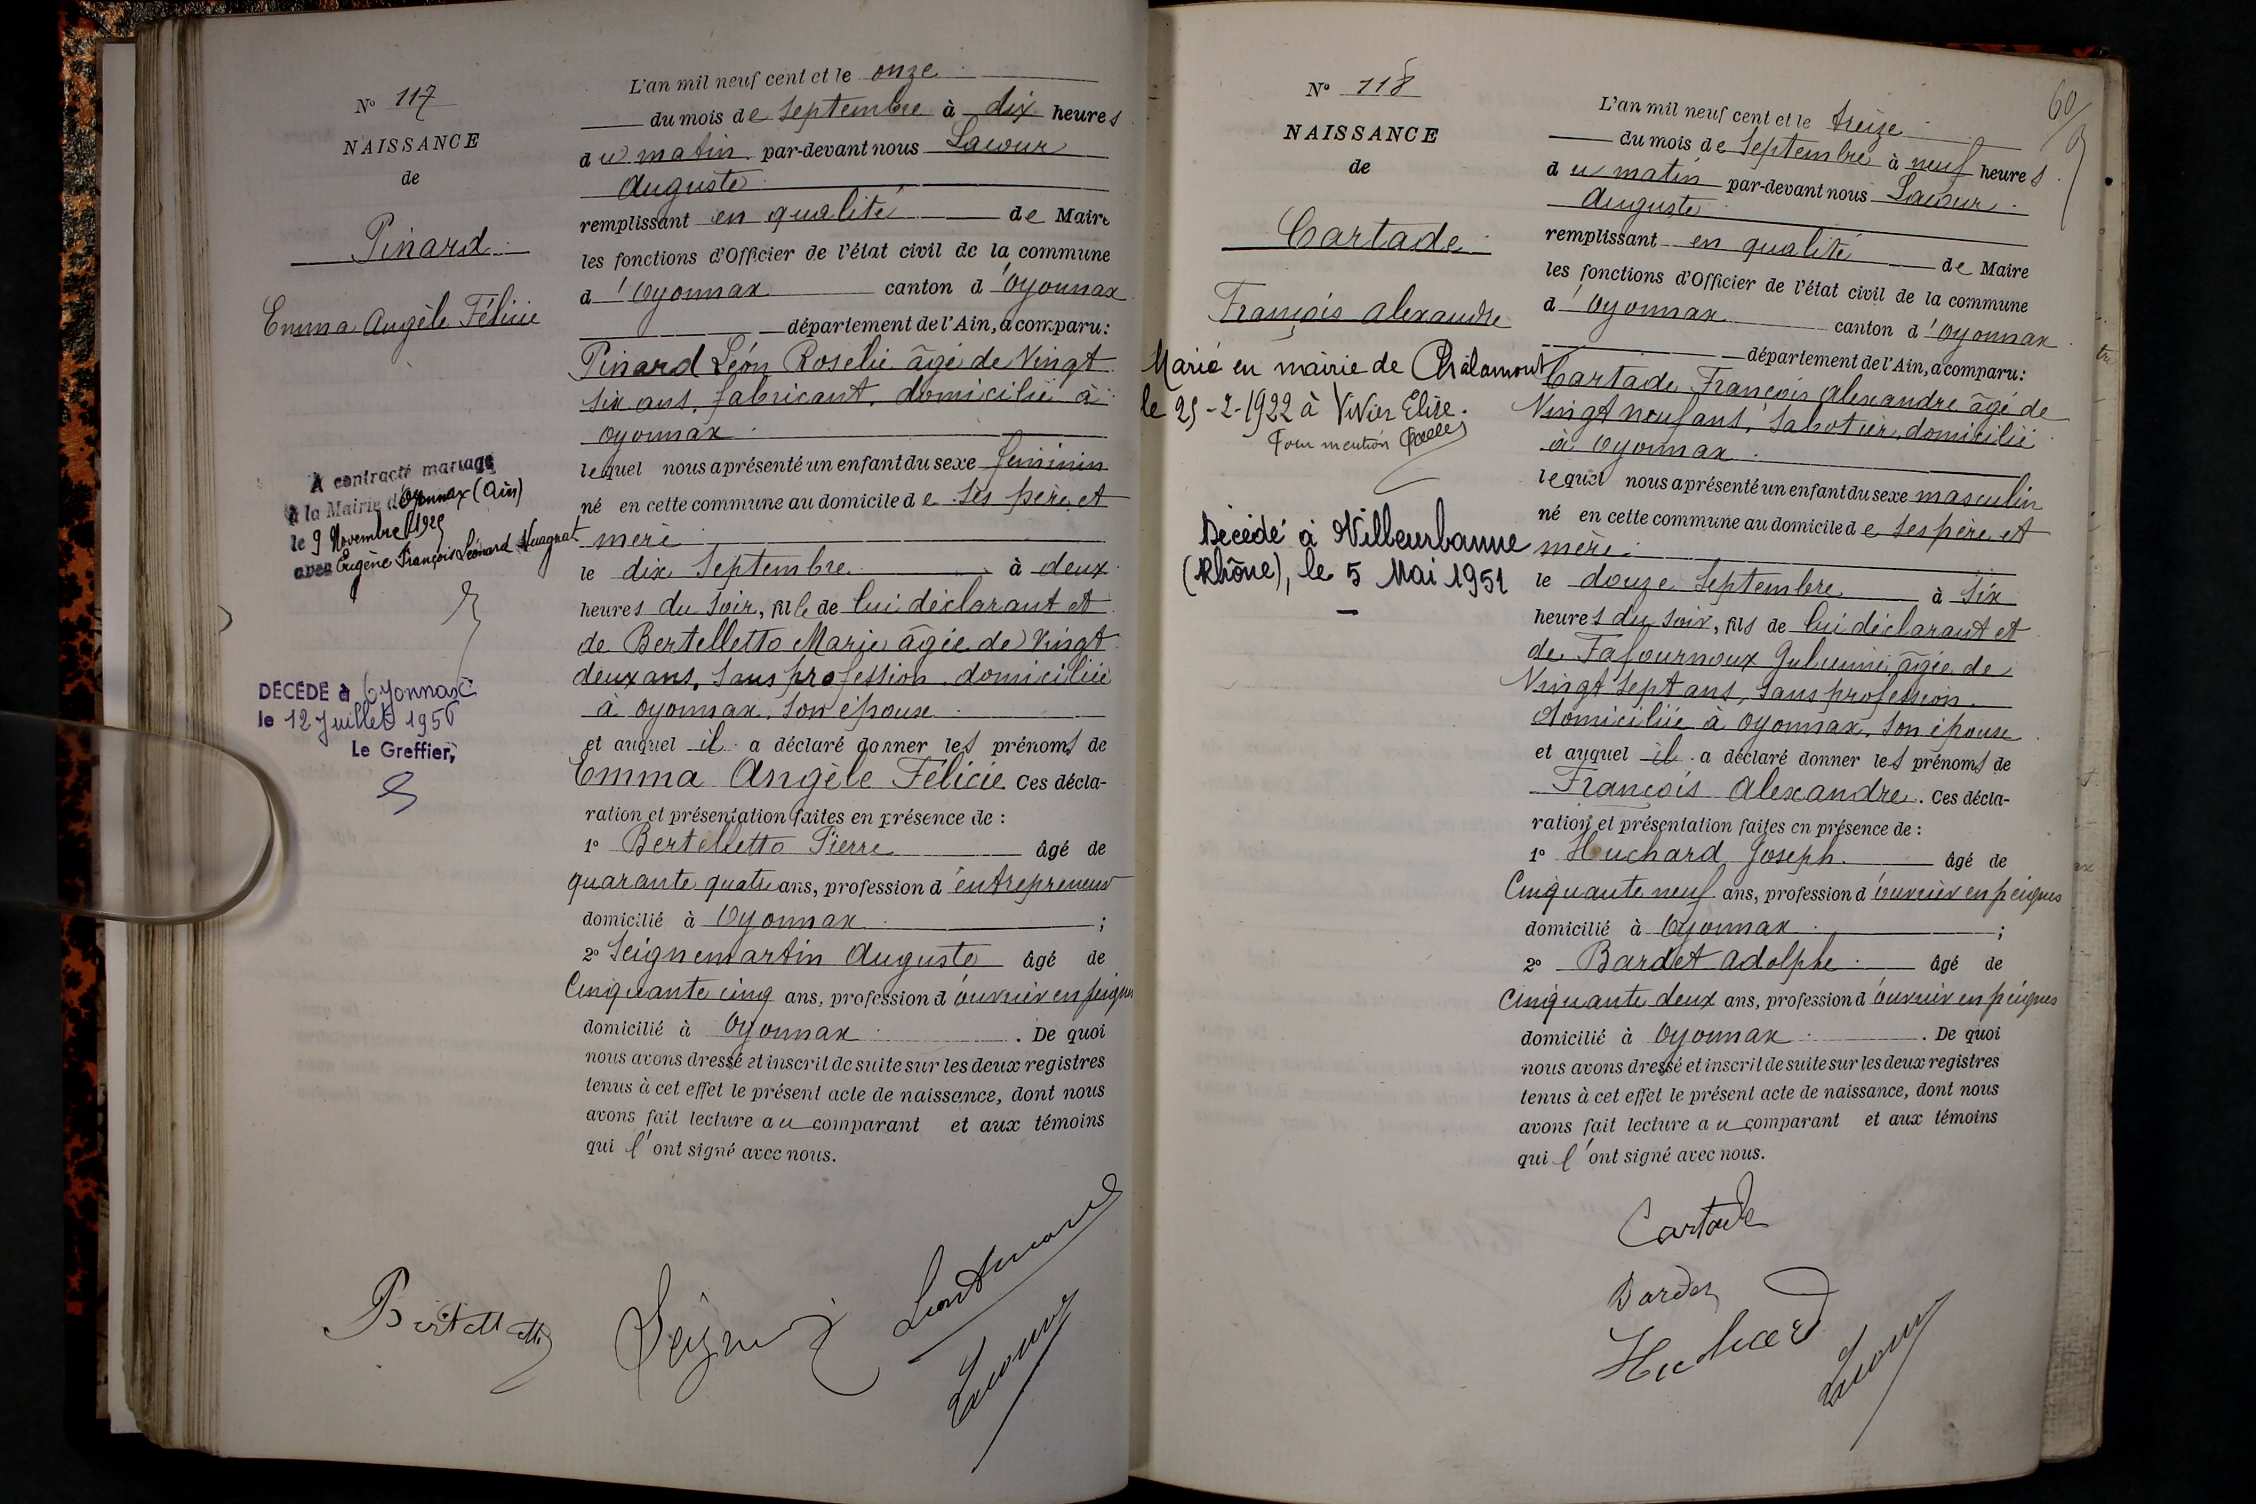 N° 117
NAISSANCE
de
Pinard
Emma Angèle Félicie
A contracté mariage
à la Mairie d'Oyonnax (Ain)
le 9 Novembre 1929
avec Eugène François Léonard Nuagnat
DÉCÉDÉ à Oyonnax
le 12 Juillet 1956
Le Greffier,
L'an mil neuf cent et le onze
du mois de Septembre à dix heures
du matin par-devant nous Lacour
Auguste
remplissant en qualité de Maire
les fonctions d'Officier de l'état civil de la commune
d'Oyonnax canton d'Oyonnax
département de l'Ain, a comparu:
Pinard Léon Roselie âgé de Vingt
six ans, fabricant, domicilié à
Oyonnax
lequel nous a présenté un enfant du sexe féminin
né en cette commune au domicile de ses père et
mère
le dix Septembre à deux
heures du soir, fille de lui déclarant et
de Bertelletto Marie âgée de Vingt
deux ans, sans profession domiciliée
à Oyonnax, son épouse
et auquel il a déclaré donner les prénoms de
Emma Angèle Félicie Ces décla-
ration et présentation faites en présence de :
1° Bertelletto Pierre âgé de
quarante quatre ans, profession d'entrepreneur
domicilié à Oyonnax ;
2° Seignemartin Auguste âgé de
Cinquante cinq ans, profession d'ouvrier en peignes
domicilié à Oyonnax . De quoi
nous avons dressé et inscrit de suite sur les deux registres
tenus à cet effet le présent acte de naissance, dont nous
avons fait lecture au comparant et aux témoins
qui l'ont signé avec nous.
Bertelletto
Lacour
60
N° 118
NAISSANCE
de
Cartade
François Alexandre
Marié en mairie de Chalamont
le 25-2-1922 à Vivier Elise.
Pour mention
Décédé à Villeurbanne
(Rhône), le 5 Mai 1951
L'an mil neuf cent et le treize
du mois de Septembre à neuf heures
du matin par-devant nous Lacour
Auguste
remplissant en qualité de Maire
les fonctions d'Officier de l'état civil de la commune
d'Oyonnax canton d'Oyonnax
département de l'Ain, a comparu:
Cartade François Alexandre âgé de
Vingt neuf ans, Sabotier, domicilié
à Oyonnax
lequel nous a présenté un enfant du sexe masculin
né en cette commune au domicile de ses père et
mère
le douze Septembre à six
heures du soir, fils de lui déclarant et
de Fafournoux âgée de
Vingt sept ans, sans profession
domiciliée à Oyonnax, son épouse
et auquel il a déclaré donner les prénoms de
François Alexandre. Ces décla-
ration et présentation faites en présence de :
1° Huchard Joseph âgé de
Cinquante neuf ans, profession d'ouvrier en peignes
domicilié à Oyonnax ;
2° Bardet Adolphe âgé de
Cinquante deux ans, profession d'ouvrier en peignes
domicilié à Oyonnax . De quoi
nous avons dressé et inscrit de suite sur les deux registres
tenus à cet effet le présent acte de naissance, dont nous
avons fait lecture au comparant et aux témoins
qui l'ont signé avec nous.
Cartade
Bardet
Huchard
Lacour